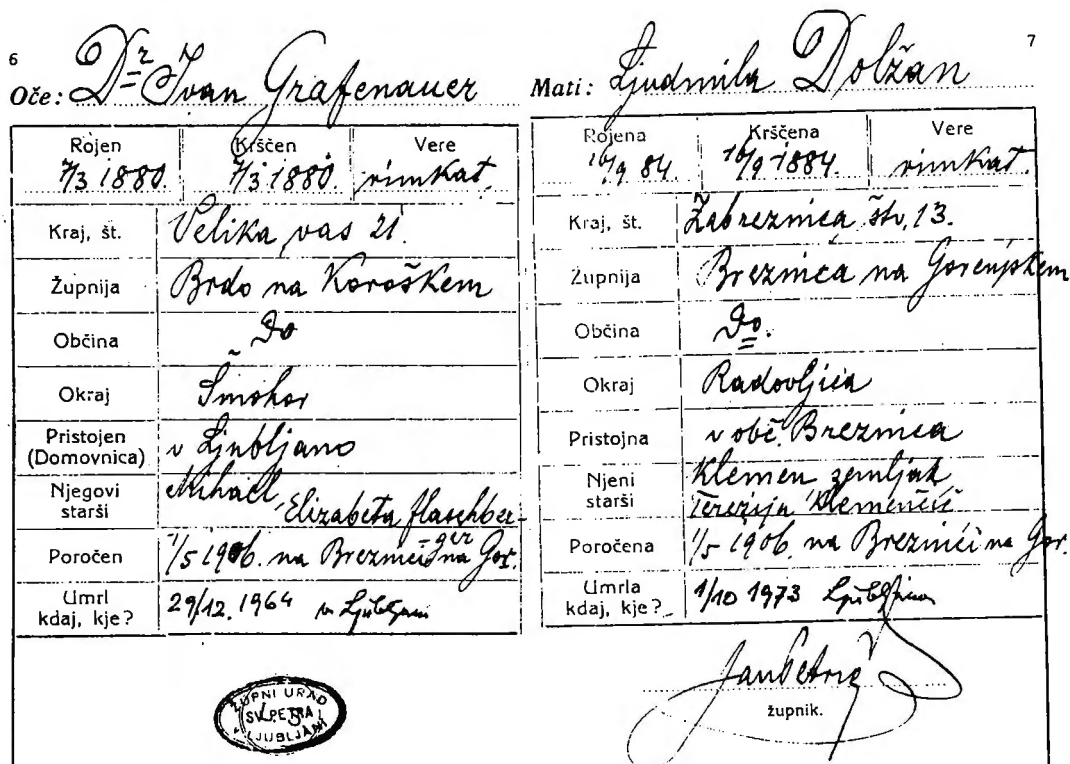 6
Oče: Dr Ivan Grafenauer
Rojen Krščen Vere
7/3 1880. 7/3 1880. rimkat.
Kraj, št. Velika vas 21.
Župnija Brdo na Koroškem
Občina Do
Okraj Šmohor
Pristojen (Domovnica) v Ljubljano
Njegovi starši Mihael, Elizabeta Flaschber-
ger
Poročen 1/5 1906. na Breznici na Gor.
Umrl kdaj, kje? 29/12. 1964 v Ljubljani
ŽUPNI URAD
SV. PETRA
V LJUBLJANI
7
Mati: Ljudmila Dolžan
Rojena Krščena Vere
16/9 84. 16/9 1884. rimkat.
Kraj, št. Žabreznica štv. 13.
Župnija Breznica na Gorenjskem
Občina Do.
Okraj Radovljica
Pristojna v obč. Breznica
Njeni starši Klemen zemljak
Terezija Klemenčič
Poročena 1/5 1906. na Breznici na Gor.
Umrla kdaj, kje? 1/10 1973 Ljubljana
Jan Petrič
župnik.